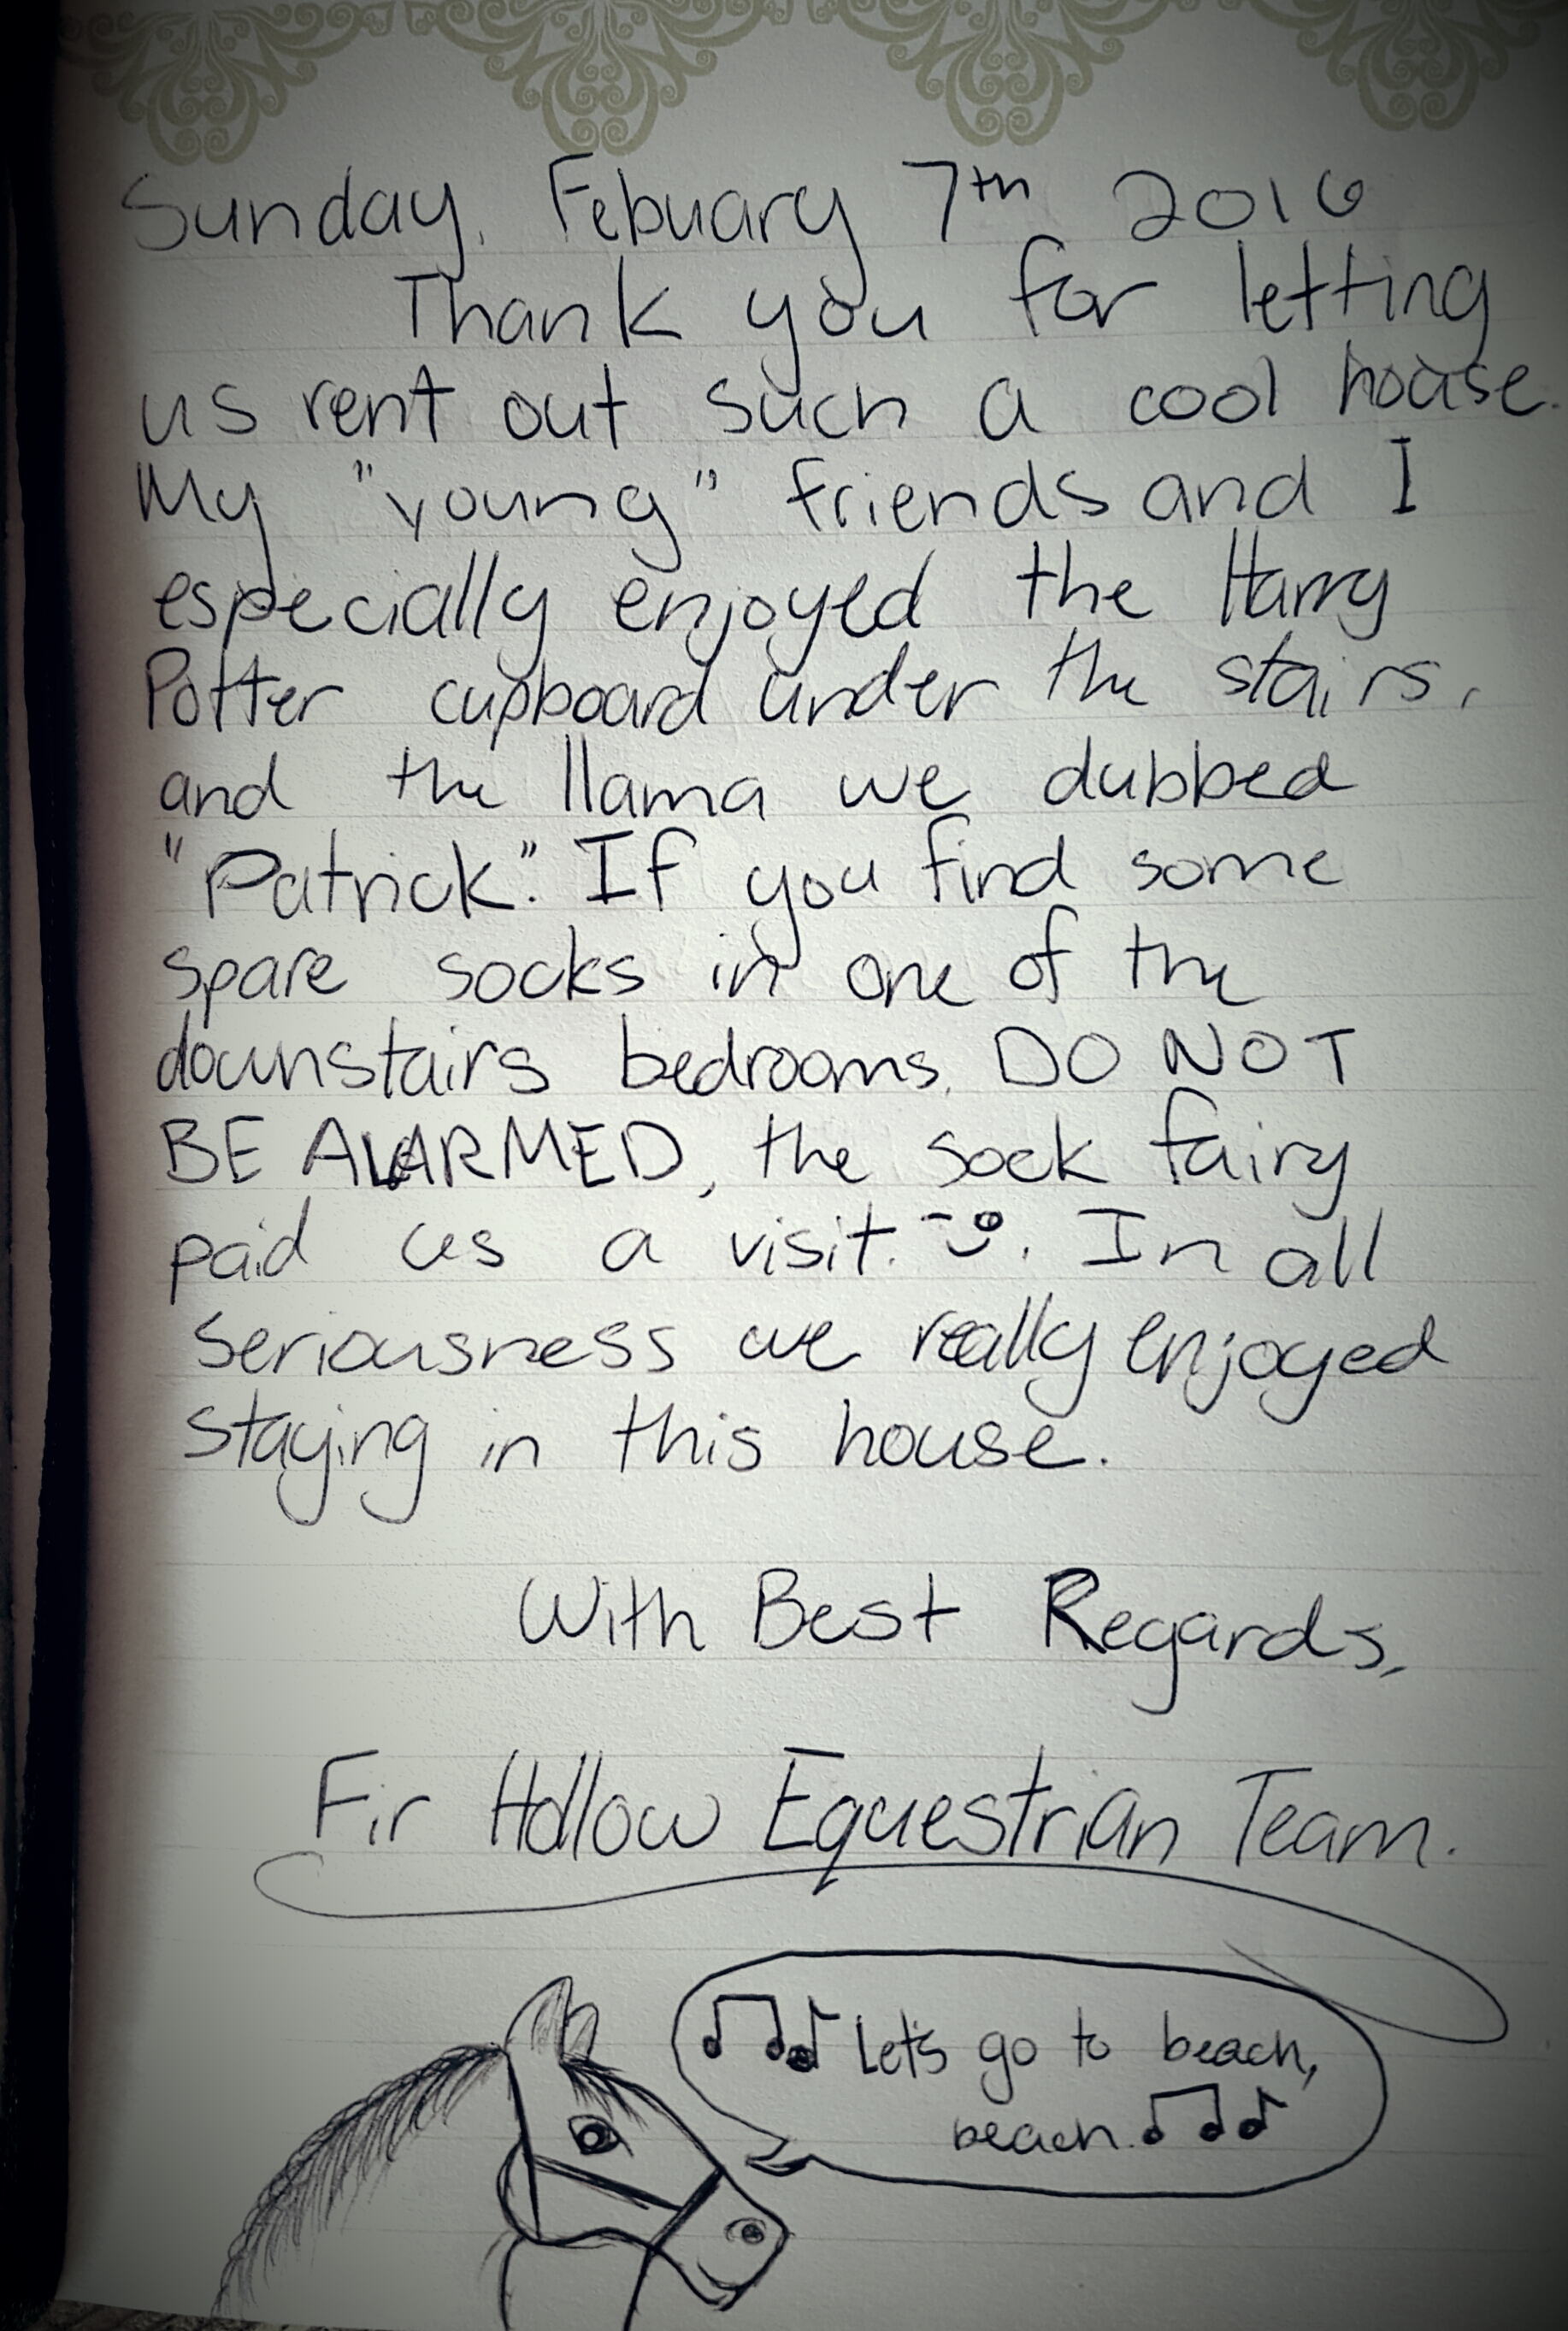 Sunday, Febuary 7th 2016
Thank you for letting
us rent out such a cool house.
My "young" friends and I
especially enjoyed the Harry
Potter cupboard under the stairs,
and the llama we dubbed
"Patrick". If you find some
spare socks in one of the
downstairs bedrooms, DO NOT
BE ALARMED, the sock fairy
paid us a visit. In all
seriousness we really enjoyed
staying in this house.
With Best Regards,
Fir Hollow Equestrian Team.
♫♪ Let's go to beach,
beach. ♫♪